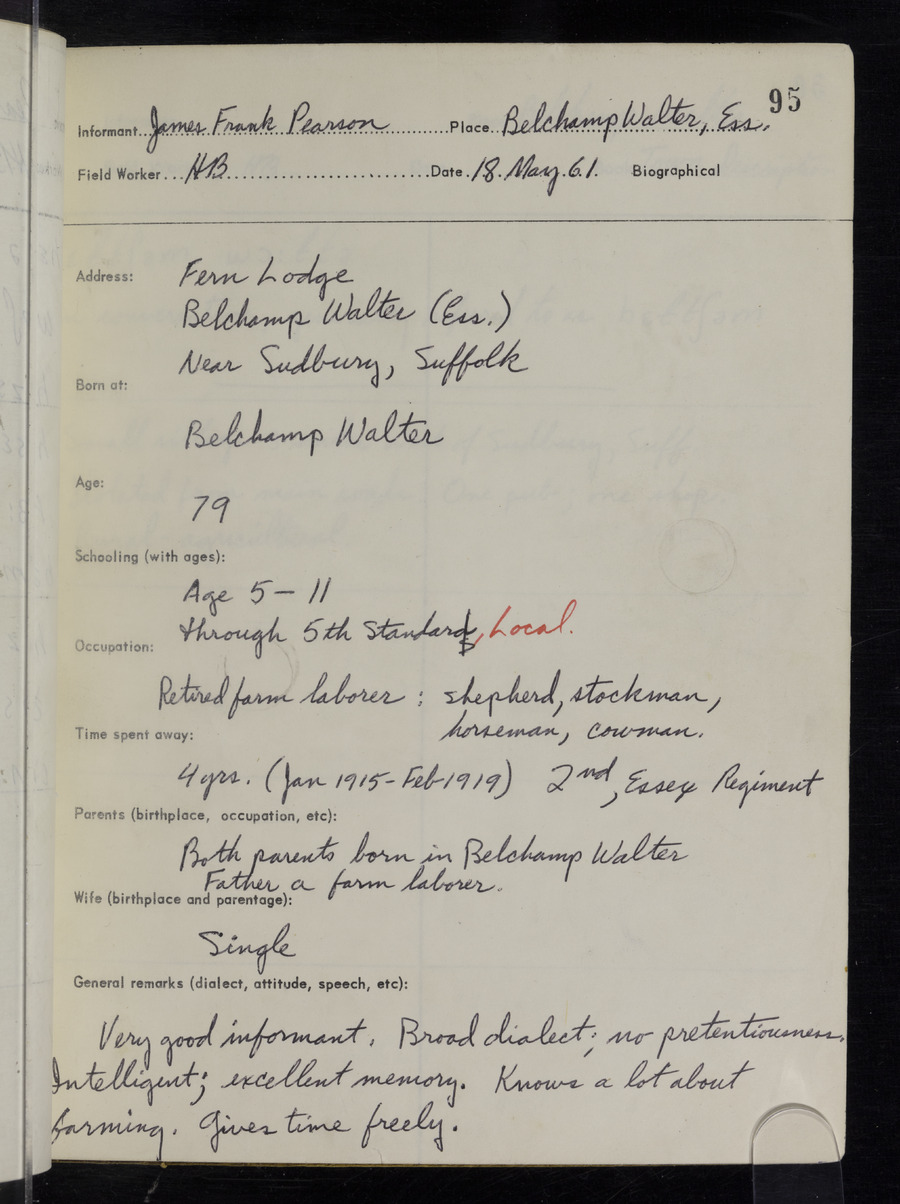 95
Informant...James Frank Pearson............Place..Belchamp Walter, Ess.
Field Worker...HB............................Date.18.May.61. Biographical
Address: Fern Lodge
Belchamp Walter (Ess.)
Near Sudbury, Suffolk
Born at:
Belchamp Walter
Age:
79
Schooling (with ages):
Age 5 – 11
through 5th Standard, Local.
Occupation:
Retired farm laborer : shepherd, stockman,
horseman, cowman.
Time spent away:
4 yrs. (Jan 1915 - Feb 1919) 2nd, Essex Regiment
Parents (birthplace, occupation, etc):
Both parents born in Belchamp Walter
Father a farm laborer.
Wife (birthplace and parentage):
Single
General remarks (dialect, attitude, speech, etc):
Very good informant. Broad dialect; no pretentiousness.
Intelligent; excellent memory. Knows a lot about
farming. Gives time freely.